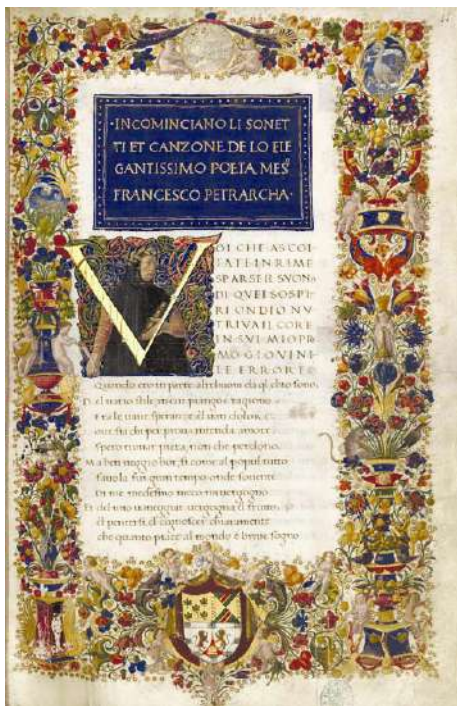 ·INCOMINCIANO LI SONET
TI ET CANZONE DE LO ELE
GANTISSIMO POETA MES
FRANCESCO PETRARCHA·
VOI CHE ASCOL
TATE IN RIME
SPARSE IL SUONO
DI QUEI SOSPI
RI ONDIO NV
TRIVA IL CORE
IN SVL MIO PR
MO GIOVINI
LE ERRORE
Quando ero in parte altrhuom da quel
Del vario stile in chui piango et ragiono
uane speranze el uan dolore
oue sia chi per proua intenda amore
spero trouar pieta, non che perdono.
Ma ben ueggio hor, si come al popul tutto
fauola fui gran tempo onde souente
Di me medesmo meco mi uergogno
Et del mio uaneggiar uergogna el fructo
el pentirsi, el cognoscer chiaramente
che quanto piace al mondo è breue sogno